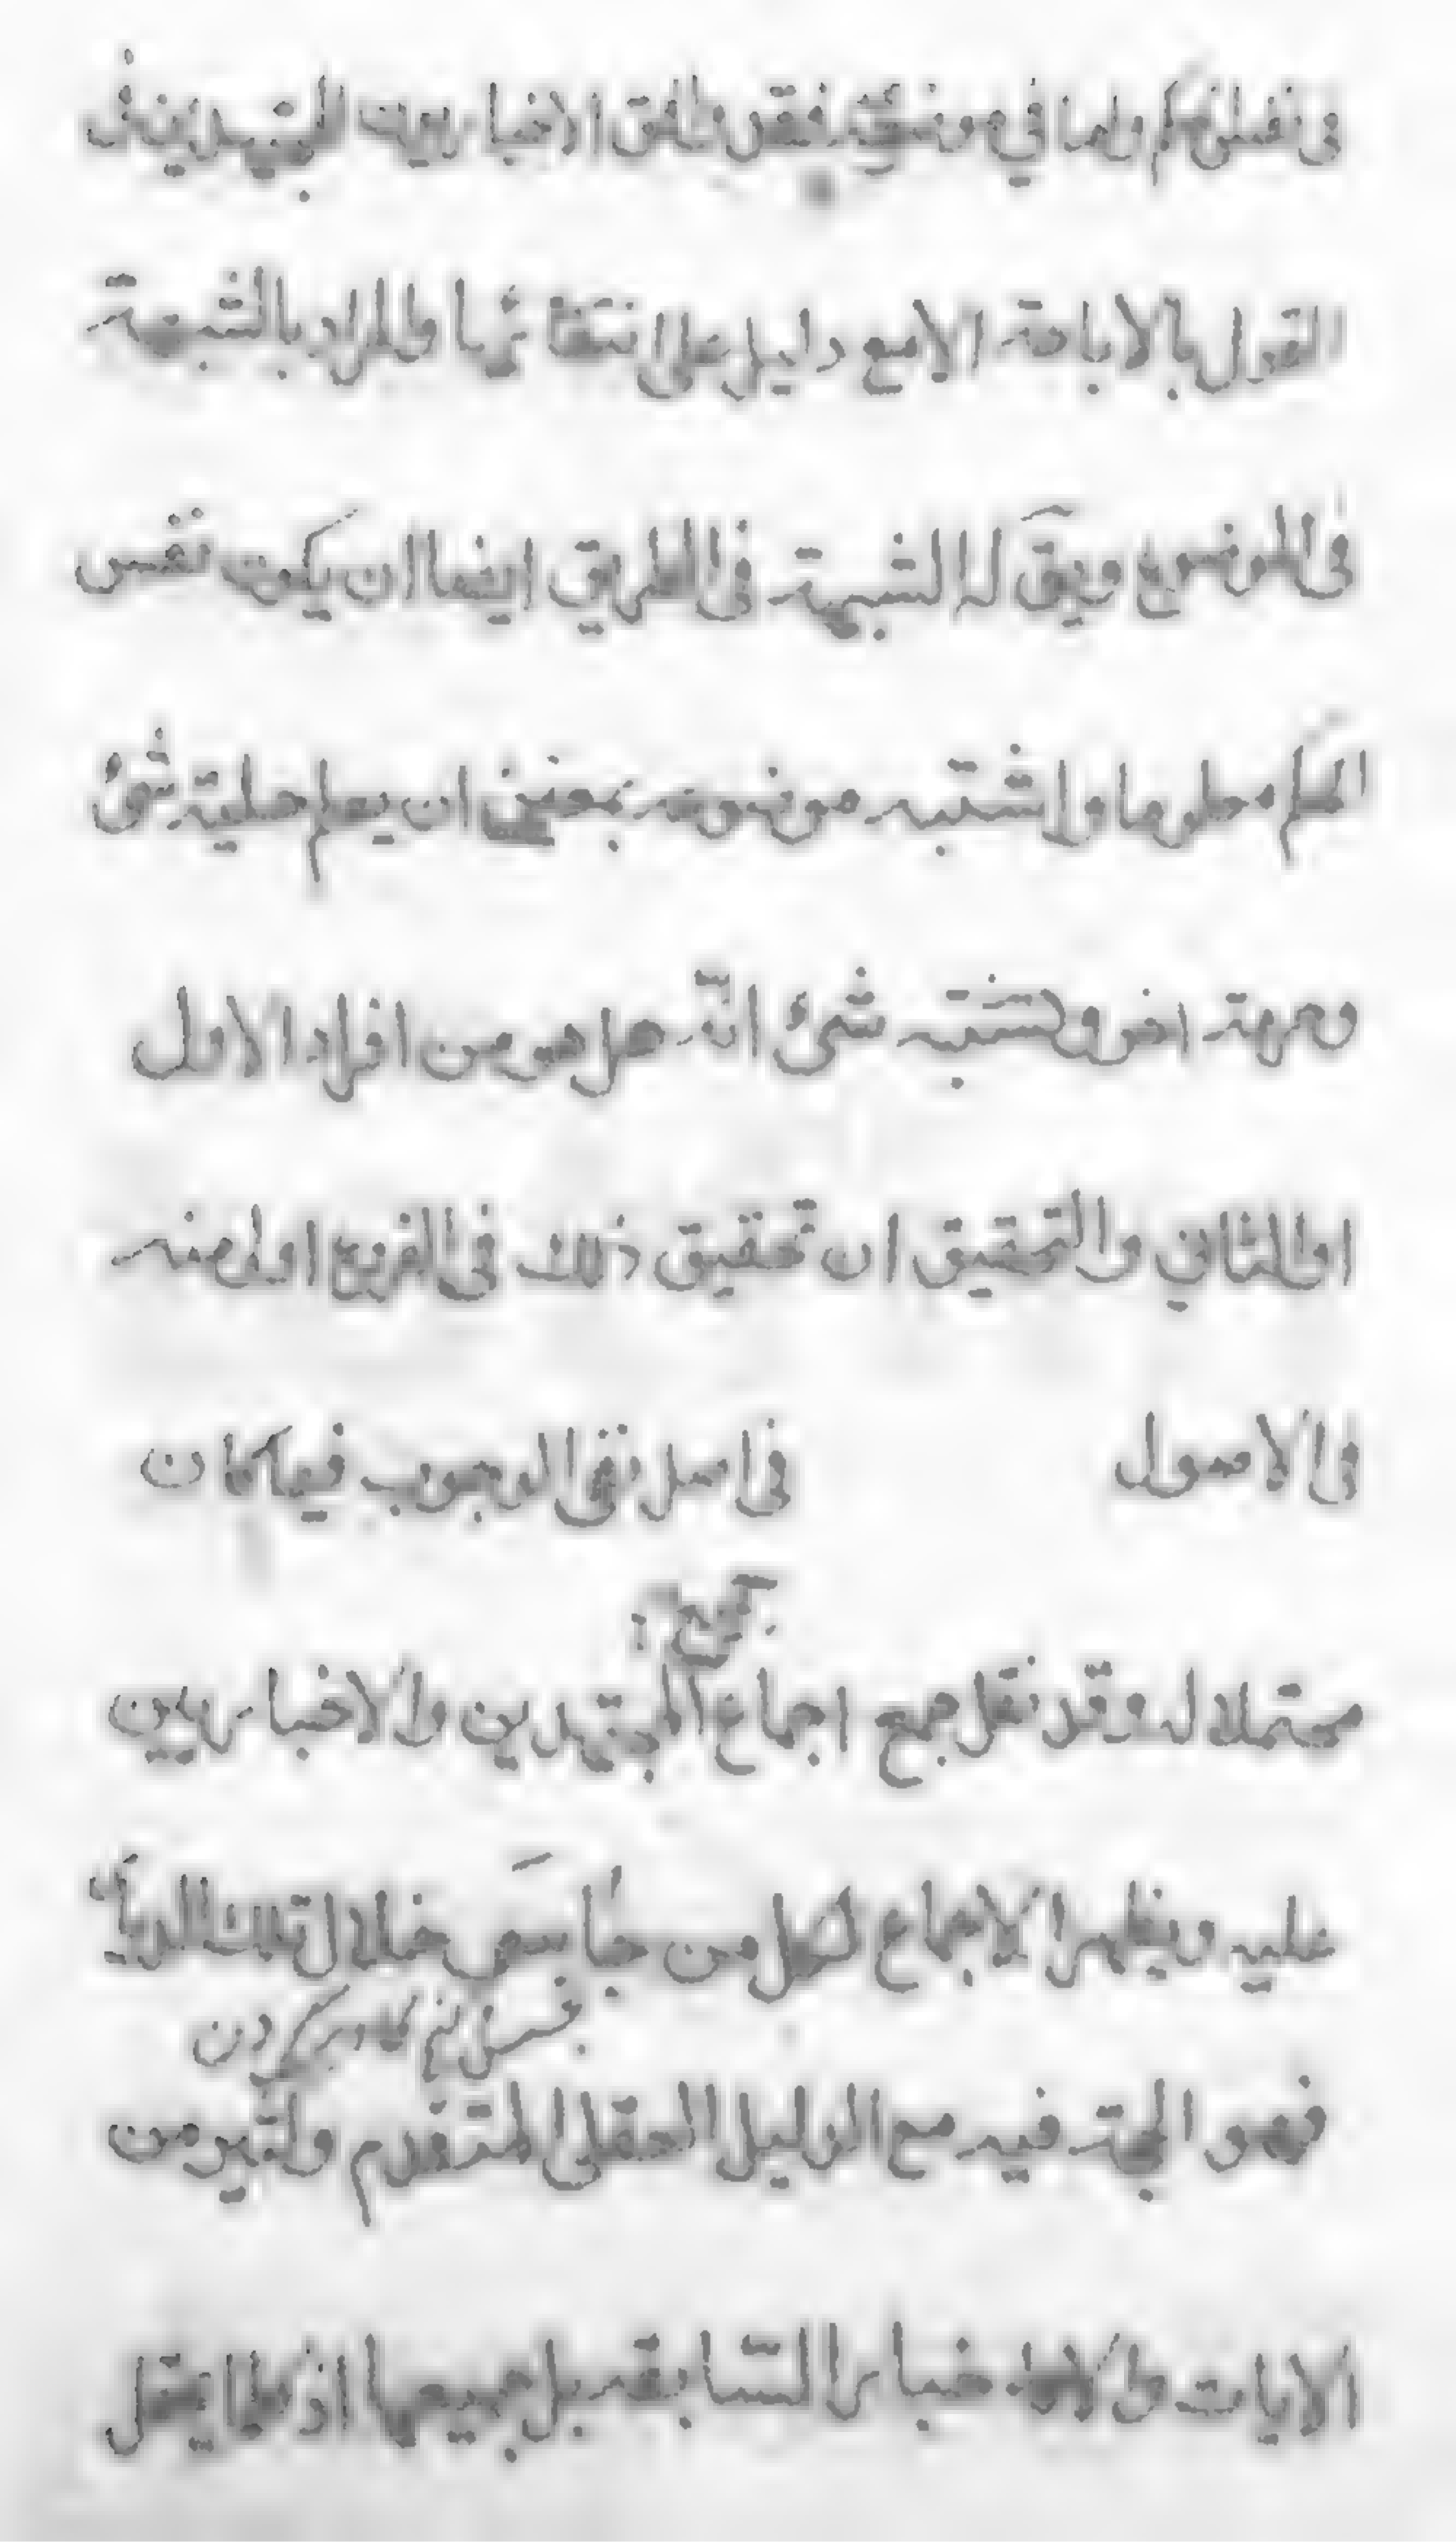 فى نفس الحكم واما في موضوعه فقد وافق الاخباريون المجتهدين فى
القول بالاباحة الا مع دليل على انتفائها والمراد بالشبهة
فى الموضوع ويق له الشبهة فى الطريق ايضا ان يكون نفس
الحكم معلوما واشتبه موضوعه بمعنى ان يعلم حلية شئ
وحرمة اخر ويشتبه شئ انّه هل هو من افراد الاول
او الثاني والتحقيق ان تحقيق ذلك فى الفروع اولى منه
فى الاصول فى اصل نفى الوجوب فيما كان
محتملا له وقد نقل جمع اجماع المجتهدين والاخباريين
عليه ويظهر الاجماع لكل من جاس خلال تلك الديار
فهو الحجة فيه مع الدليل العقلى المتقدم وكثير من
الايات والاخبار السّابقه بل جميعها اذ ما يقل